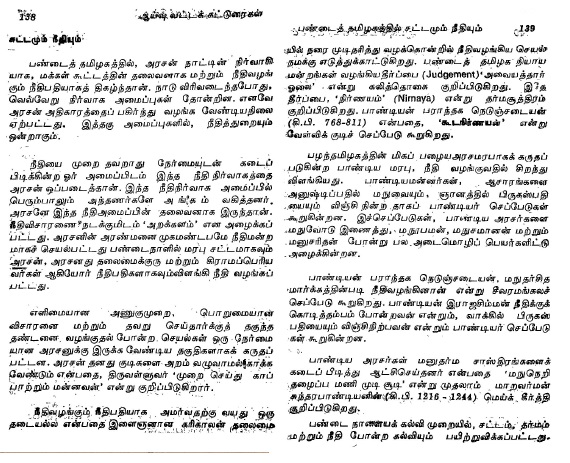 138 ஆய்வு வட்டக் கட்டுரைகள்
சட்டமும் நீதியும்
பண்டைத் தமிழகத்தில், அரசன் நாட்டின் நிர்வாகி
யாக, மக்கள் கூட்டத்தின் தலைவனாக மற்றும் நீதிவழங்
கும் நீதிபதியாகத் திகழ்ந்தான். நாடு விரிவடைந்தபோது,
வெவ்வேறு நிர்வாக அமைப்புகள் தோன்றின. எனவே
அரசன் அதிகாரத்தைப் பகிர்ந்து வழங்க வேண்டியநிலை
ஏற்பட்டது. இத்தகு அமைப்புகளில், நீதித்துறையும்
ஒன்றாகும்.
நீதியை முறை தவறாது நேர்மையுடன் கடைப்
பிடிக்கின்ற ஓர் அமைப்பிடம் இந்த நீதி நிர்வாகத்தை
அரசன் ஒப்படைத்தான். இந்த நீதிநிர்வாக அமைப்பில்
பெரும்பாலும் அந்தணர்களே அங்கம் வகித்தனர்,
அரசனே இந்த நீதிஅமைப்பின் தலைவனாக இருந்தான்.
நீதிவிசாரணை நடக்குமிடம் 'அறக்களம்' என அழைக்கப்
பட்டது. அரசனின் அரண்மனை முகமண்டபமே நீதிமன்ற
மாகச் செயல்பட்டது பண்டைநாளில் மரபு சட்டமாகவும்
அரசன், அரசனது தலைமைக்குரு மற்றும் கிராமப்பெரிய
வர்கள் ஆகியோர் நீதிபதிகளாகவும்விளங்கி நீதி வழங்கப்
பட்டது.
எளிமையான அணுகுமுறை, பொறுமையான
விசாரனை மற்றும் தவறு செய்தார்க்குத் தகுந்த
தண்டனை வழங்குதல் போன்ற செயல்கள் ஒரு நேர்மை
யான அரசனுக்கு இருக்க வேண்டிய தகுதிகளாகக் கருதப்
பட்டன. அரசன் தனது குடிகளை அறம் வழுவாமல்காக்க
வேண்டும் என்பதை, திருவள்ளுவர் 'முறை செய்து காப்
பாற்றும் மன்னவன்' என்று குறிப்பிடுகிறார்.
நீதிவழங்கும் நீதிபதியாக அமர்வதற்கு வயது ஒரு
தடையல்ல என்பதை இளைஞனான கரிகாலன் தலைமை
பண்டைத் தமிழகத்தில் சட்டமும் நீதியும் 139
யில் நரை முடிதரித்து வழக்கொன்றில் நீதிவழங்கிய செயல்
நமக்கு எடுத்துக்காட்டுகிறது. பண்டைத் தமிழக நியாய
மன்றங்கள் வழங்கியதீர்ப்பை (Judgement) 'அவையத்தார்
ஓலை' என்று கலித்தொகை குறிப்பிடுகிறது. இதே
தீர்ப்பை, 'நிர்ணயம்' (Nirnaya) என்று தர்மசூத்திரம்
குறிப்பிடுகிறது. பாண்டியன் பராந்தக நெடுஞ்சடையன்
(கி.பி. 768-811) என்பதை, 'கூடநிர்ணயன்' என்று
வேள்விக் குடிச் செப்பேடு கூறுகிறது.
பழந்தமிழகத்தின் மிகப் பழையஅரசமரபாகக் கருதப்
படுகின்ற பாண்டிய மரபு, நீதி வழங்குவதில் சிறந்து
விளங்கியது. பாண்டியமன்னர்கள், ஆசாரங்களை
அனுஷ்டிப்பதில் மநுவையும், ஞானத்தில் பிருகஸ்பதி
யையும் விஞ்சி நின்றதாகப் பாண்டியர் செப்பேடுகள்
கூறுகின்றன. இச்செப்பேடுகள், பாண்டிய அரசர்களை
மநுவோடு இணைத்து, மநூபமன், மநுசமானன் மற்றும்
மனுசரிதன் போன்று பல அடைமொழிப் பெயர்களிட்டு
அழைக்கின்றன.
பாண்டியன் பராந்தக நெடுஞ்சடையன், மநுதர்சித
மார்க்கத்தின்படி நீதிவழங்கினான் என்று சீவரமங்கலச்
செப்பேடு கூறுகிறது. பாண்டியன் இராஜசிம்மன் நீதிக்குக்
கொடித்தம்பம் போன்றவன் என்றும், வாக்கில் பிருகஸ்
பதியையும் விஞ்சிநிற்பவன் என்றும் பாண்டியர் செப்பேடு
கள் கூறுகின்றன.
பாண்டிய அரசர்கள் மனுதர்ம சாஸ்திரங்களைக்
கடைப் பிடித்து ஆட்சிசெய்தனர் என்பதை 'மநுநெறி
தழைப்ப மணி முடி சூடி' என்று முதலாம் மாறவர்மன்
சுந்தரபாண்டியனின் (கி.பி. 1216 - 1244) மெய்க் கீர்த்தி
குறிப்பிடுகிறது.
பண்டை நாளையக் கல்வி முறையில், சட்டம், தர்மம்
மற்றும் நீதி போன்ற கல்வியும் பயிற்றுவிக்கப்பட்டது.